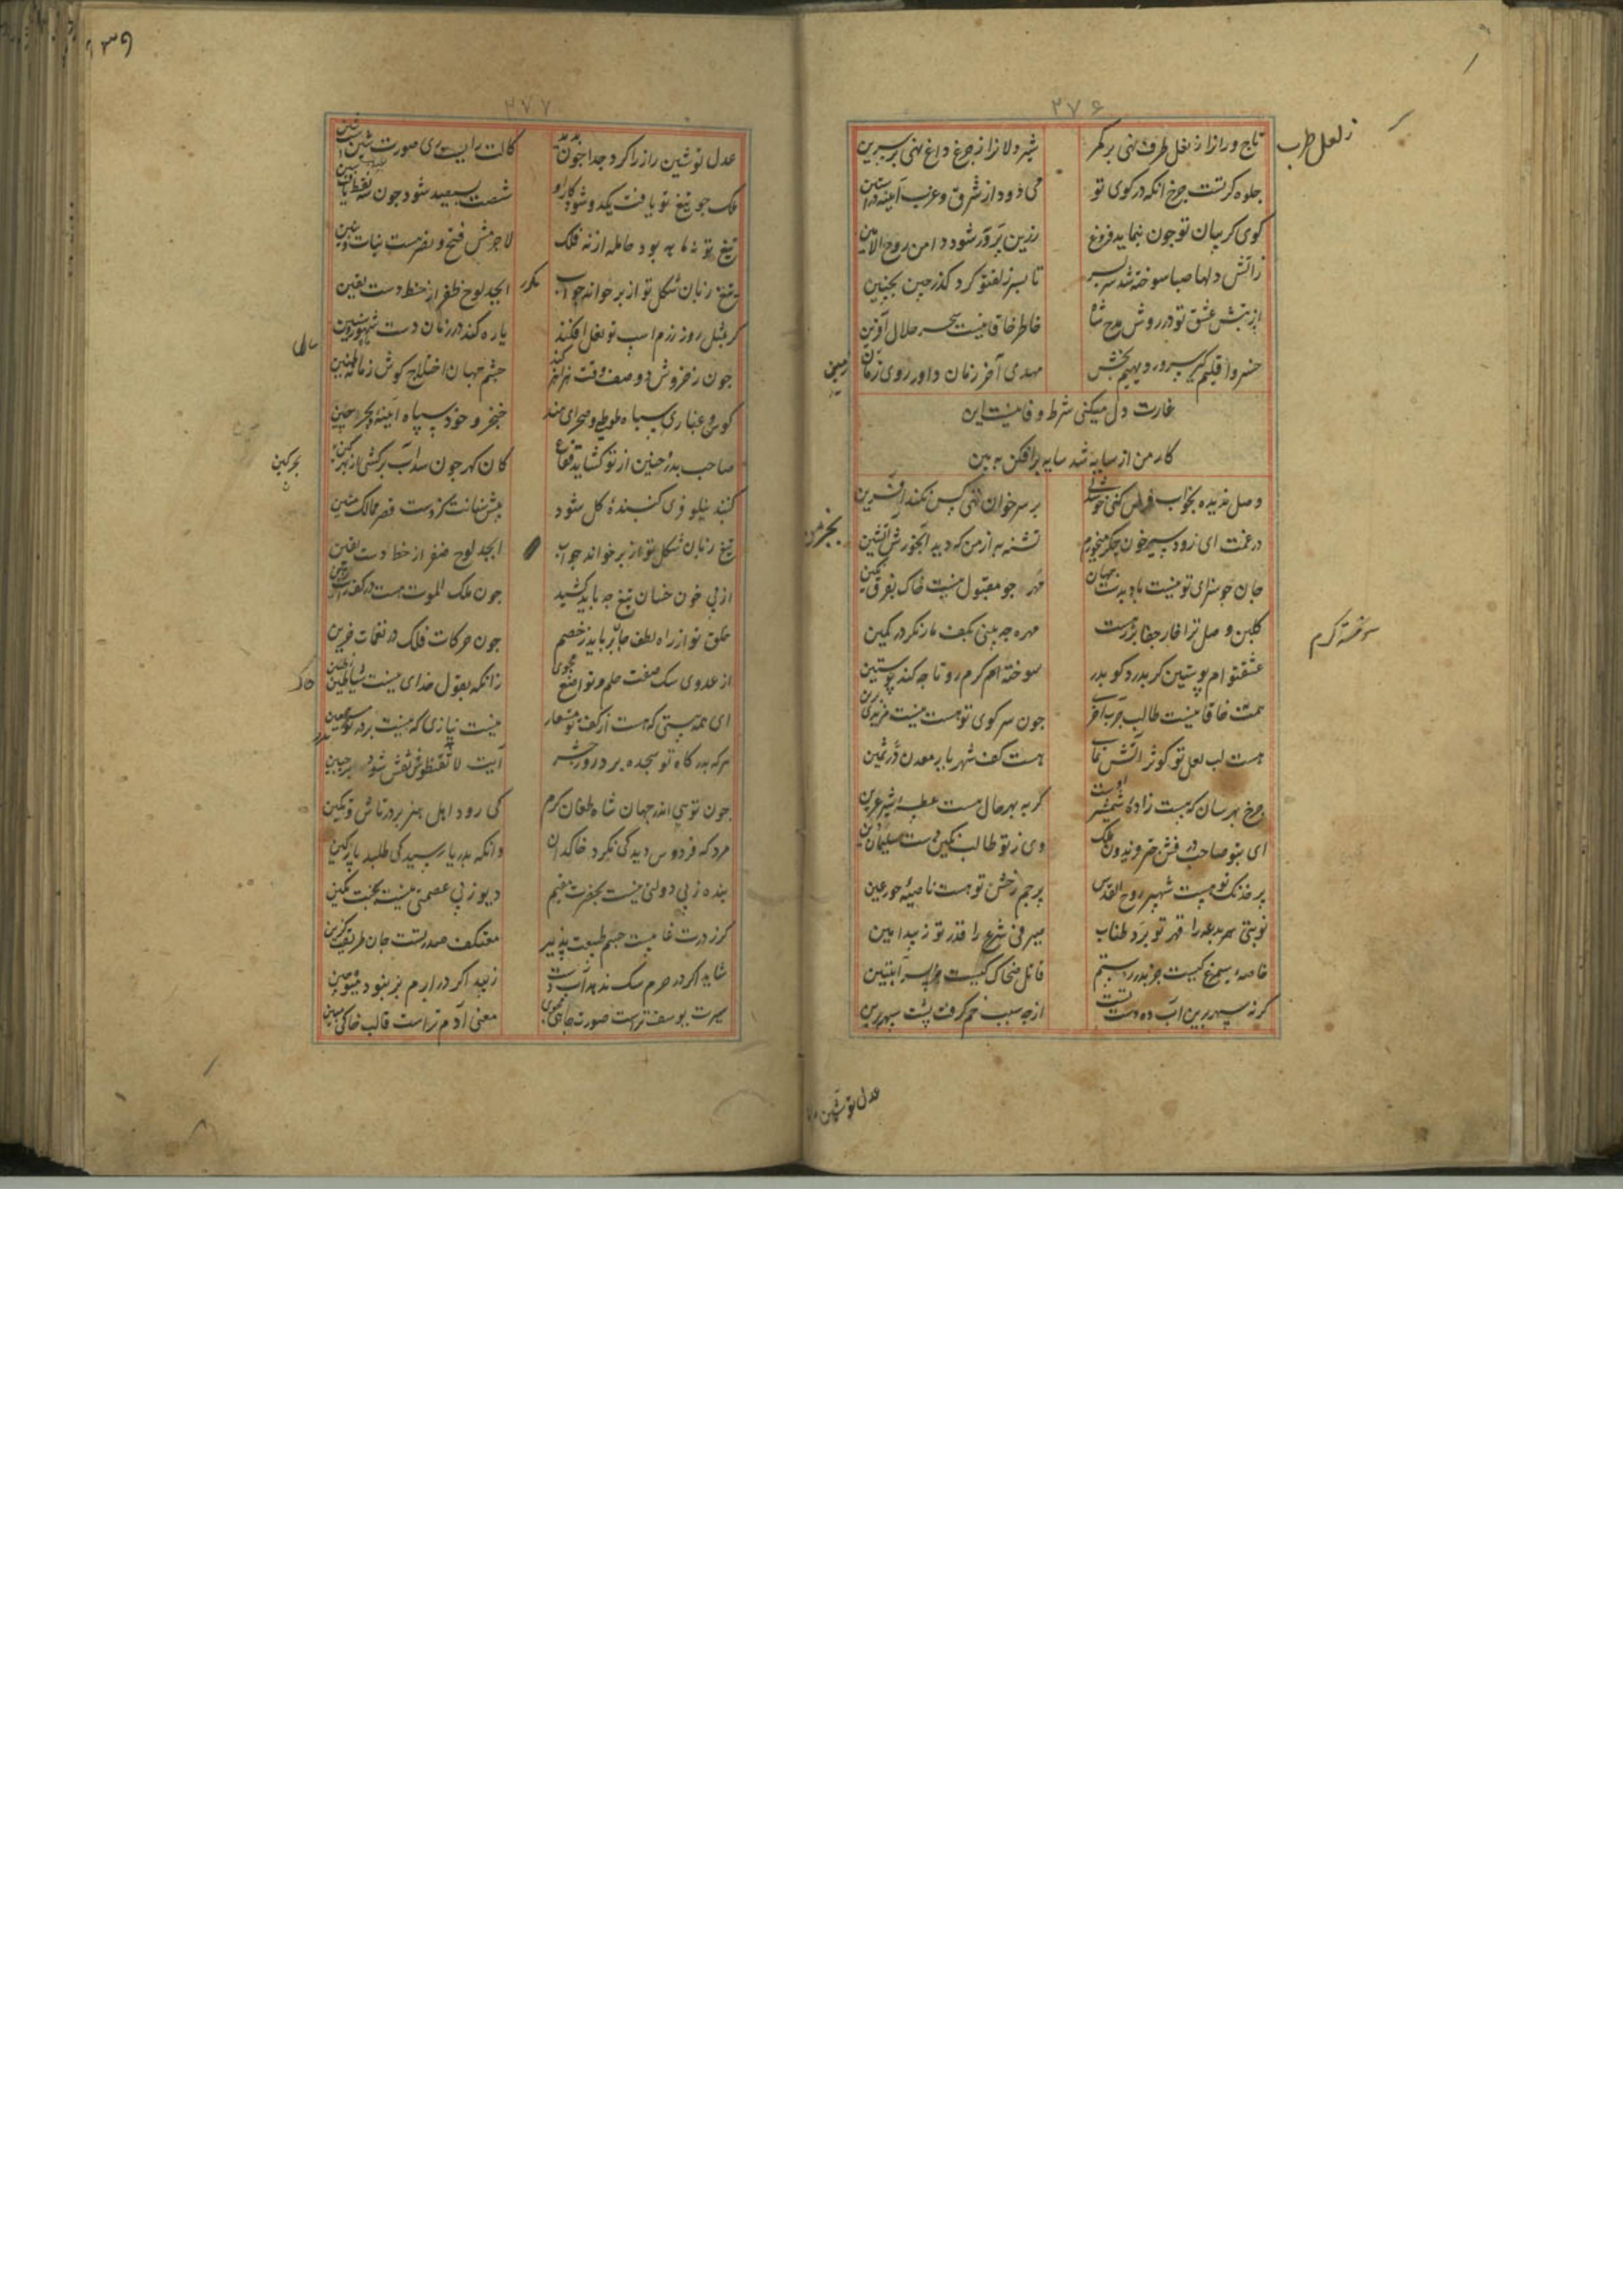 ۲۷۶
تاج ورانرا ز لعل طرف نهی بر کمر شیردلانرا ز جزع داغ نهی بر سرین
ز لعل طرب
جلوه کرتست چرخ انکه در کوی تو می دود از شرق وغرب آینه در آستین
کوی کریبان تو جون بنماید فروغ زرین پرور شود دامن روح الامین
زآتش دلها صبا سوخته شد سر بسر تا بسر زلف تو کرد کذر جین بجین
از تبش عشق تو در روش مدح شاه خاطر خاقانیست سحر حلال آفرین
خسرو اقلیم کیر سرور دیهیم بخش مهدی آخر زمان داور روی زمان
زمین
غارت دل میکنی شرط وفا نیست این
کار من از سایه شد سایه برافکن ببین
وصل ندیده بخواب فرض کنی خوشدلی بر سر خوان تهی کس نکند آفرین
در غمت ای زود سیر خون جکر میخورم تشنه به از من که دید آبخورش آتشین
جان جو سزای تو نیست باد بدست جهان مهر جو مقبول نیست خاک بفرق نکین
کلبن وصل ترا خار جفا بر رهست مهره چه بینی بکف مار نکر در کمین
عشق تو ام پوستین کر بدرد کو بدر سوخته ام کرم رو تا چه کند پوستین
همت خاقانیست طالب چرب آخری جون سر کوی تو هست نیست مزیدی برین
هست لب لعل تو کوثر آتش نمای هست کف شهریار معدن در ثمین
چرخ بهر سان که هست زاده شمشیر اوست کر به بهر حال هست عطسه شیر عرین
ای بتو صاحب درفش خسرو فریدون ملک وی ز تو طالب نکین دست سلیمان دین
پر خدنک تو هست شهپر روح القدس پرچم رخش تو هست ناصیه حور عین
نوبتی بدعه را قهر تو برد طناب صیرفی شرع را قدر تو زیبد امین
خاصه سیمرغ کیست جز پدر رستم قاتل ضحاک کیست جز پسر آبتین
کر نه سپهر برین آب ده دست تست از چه سبب خم کرفت پشت سپهر برین
عدل تو شین
۲۷۷
عدل تو شین را ز را کرد جدا جون بدید کالت رای است ری صورت شین است شین
ملک جو تیغ تو یافت یکدو شود کار او شصت بسیصد شود جون سه نقط یافت سین
تیغ تو نه ماهه بود حامله از نه فلک لاجرمش فتح و نصر هست بنات و بنین
تیغ زبان شکل تو از بر خواند جو آب ابجد لوح ظفر از خط دست یقین
مکرر
کر بمثل روز رزم اسب تو نعل افکند یاره کند در زمان دست شهور و سنین
جون ز خروش دو صف وقت هزاهز کند چشم جهان اختلاج کوش زمانه طنین
کوس و غبار سپاه طوطی و صحرای هند خنجر و خود سپاه آینه و بحر چین
صاحب بدر و حنین از تو کشاید فقاع کان کهر جون سداب برکشی از بهر کین
کنبد نیلوفری کنبده کل شود پیش سنانت کزوست قصر ممالک متین
تیغ زبان شکل تو از بر خواند جو آب ابجد لوح ظفر از خط دست یقین
از پی خون خسان تیغ چه باید کشید جون ملک الموت هست در کف تو رهین
خلق تو از راه لطف جان برباید ز خصم جون حرکات فلک در نغمات حزین
از عدوی سک صفت حلم و تواضع مجوی زانکه بقول خدای نیست شیاطین ز طین
ای همه هستی که هست از کف تو مستعار نیست نیازی که نیست بر در تو مستعین
هر که بدرکاه تو سجده برد روز حشر آیت لا تقنطوا نقش شود بر جبین
جون توئی اندر جهان شاه طغان کرم کی رود اهل هنر بر در تاش و تکین
مرد که فردوس دید کی نکرد خاکدان وانکه بدریا رسید کی طلبد پارکین
بنده ز بی دولتی نیست بحضرت مقیم دیو ز بی عصمتی نیست بجنت مکین
کر ز درت غایبست جسم طبیعت پذیر معتکف صدر تست جان طریقت کزین
شاید اکر در حرم سک ندهد آب دست زیبد اکر در ارم بز نبود میوه چین
سیرت یوسف تراست صورت چاهی مجوی معنی آدم تراست قالب خاکی مبین